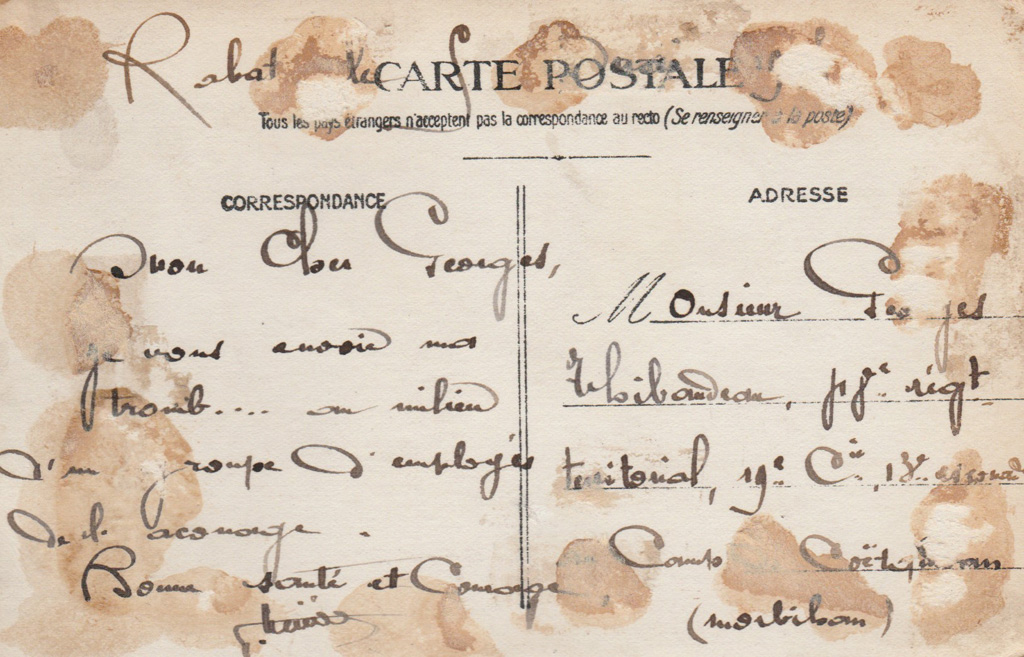 Rabat le
CARTE POSTALE
Tous les pays étrangers n'acceptent pas la correspondance au recto (Se renseigner à la poste)
CORRESPONDANCE
Mon Cher Georges,
je vous envoie ma
tromb.... au milieu
d'un groupe d'employés
de l'
Bonne santé et Courage
ADRESSE
Monsieur Georges
Thibaudeau, régt
territorial, 19e Cie, 13e escouade
Camp Coëtquidan
(Morbihan)